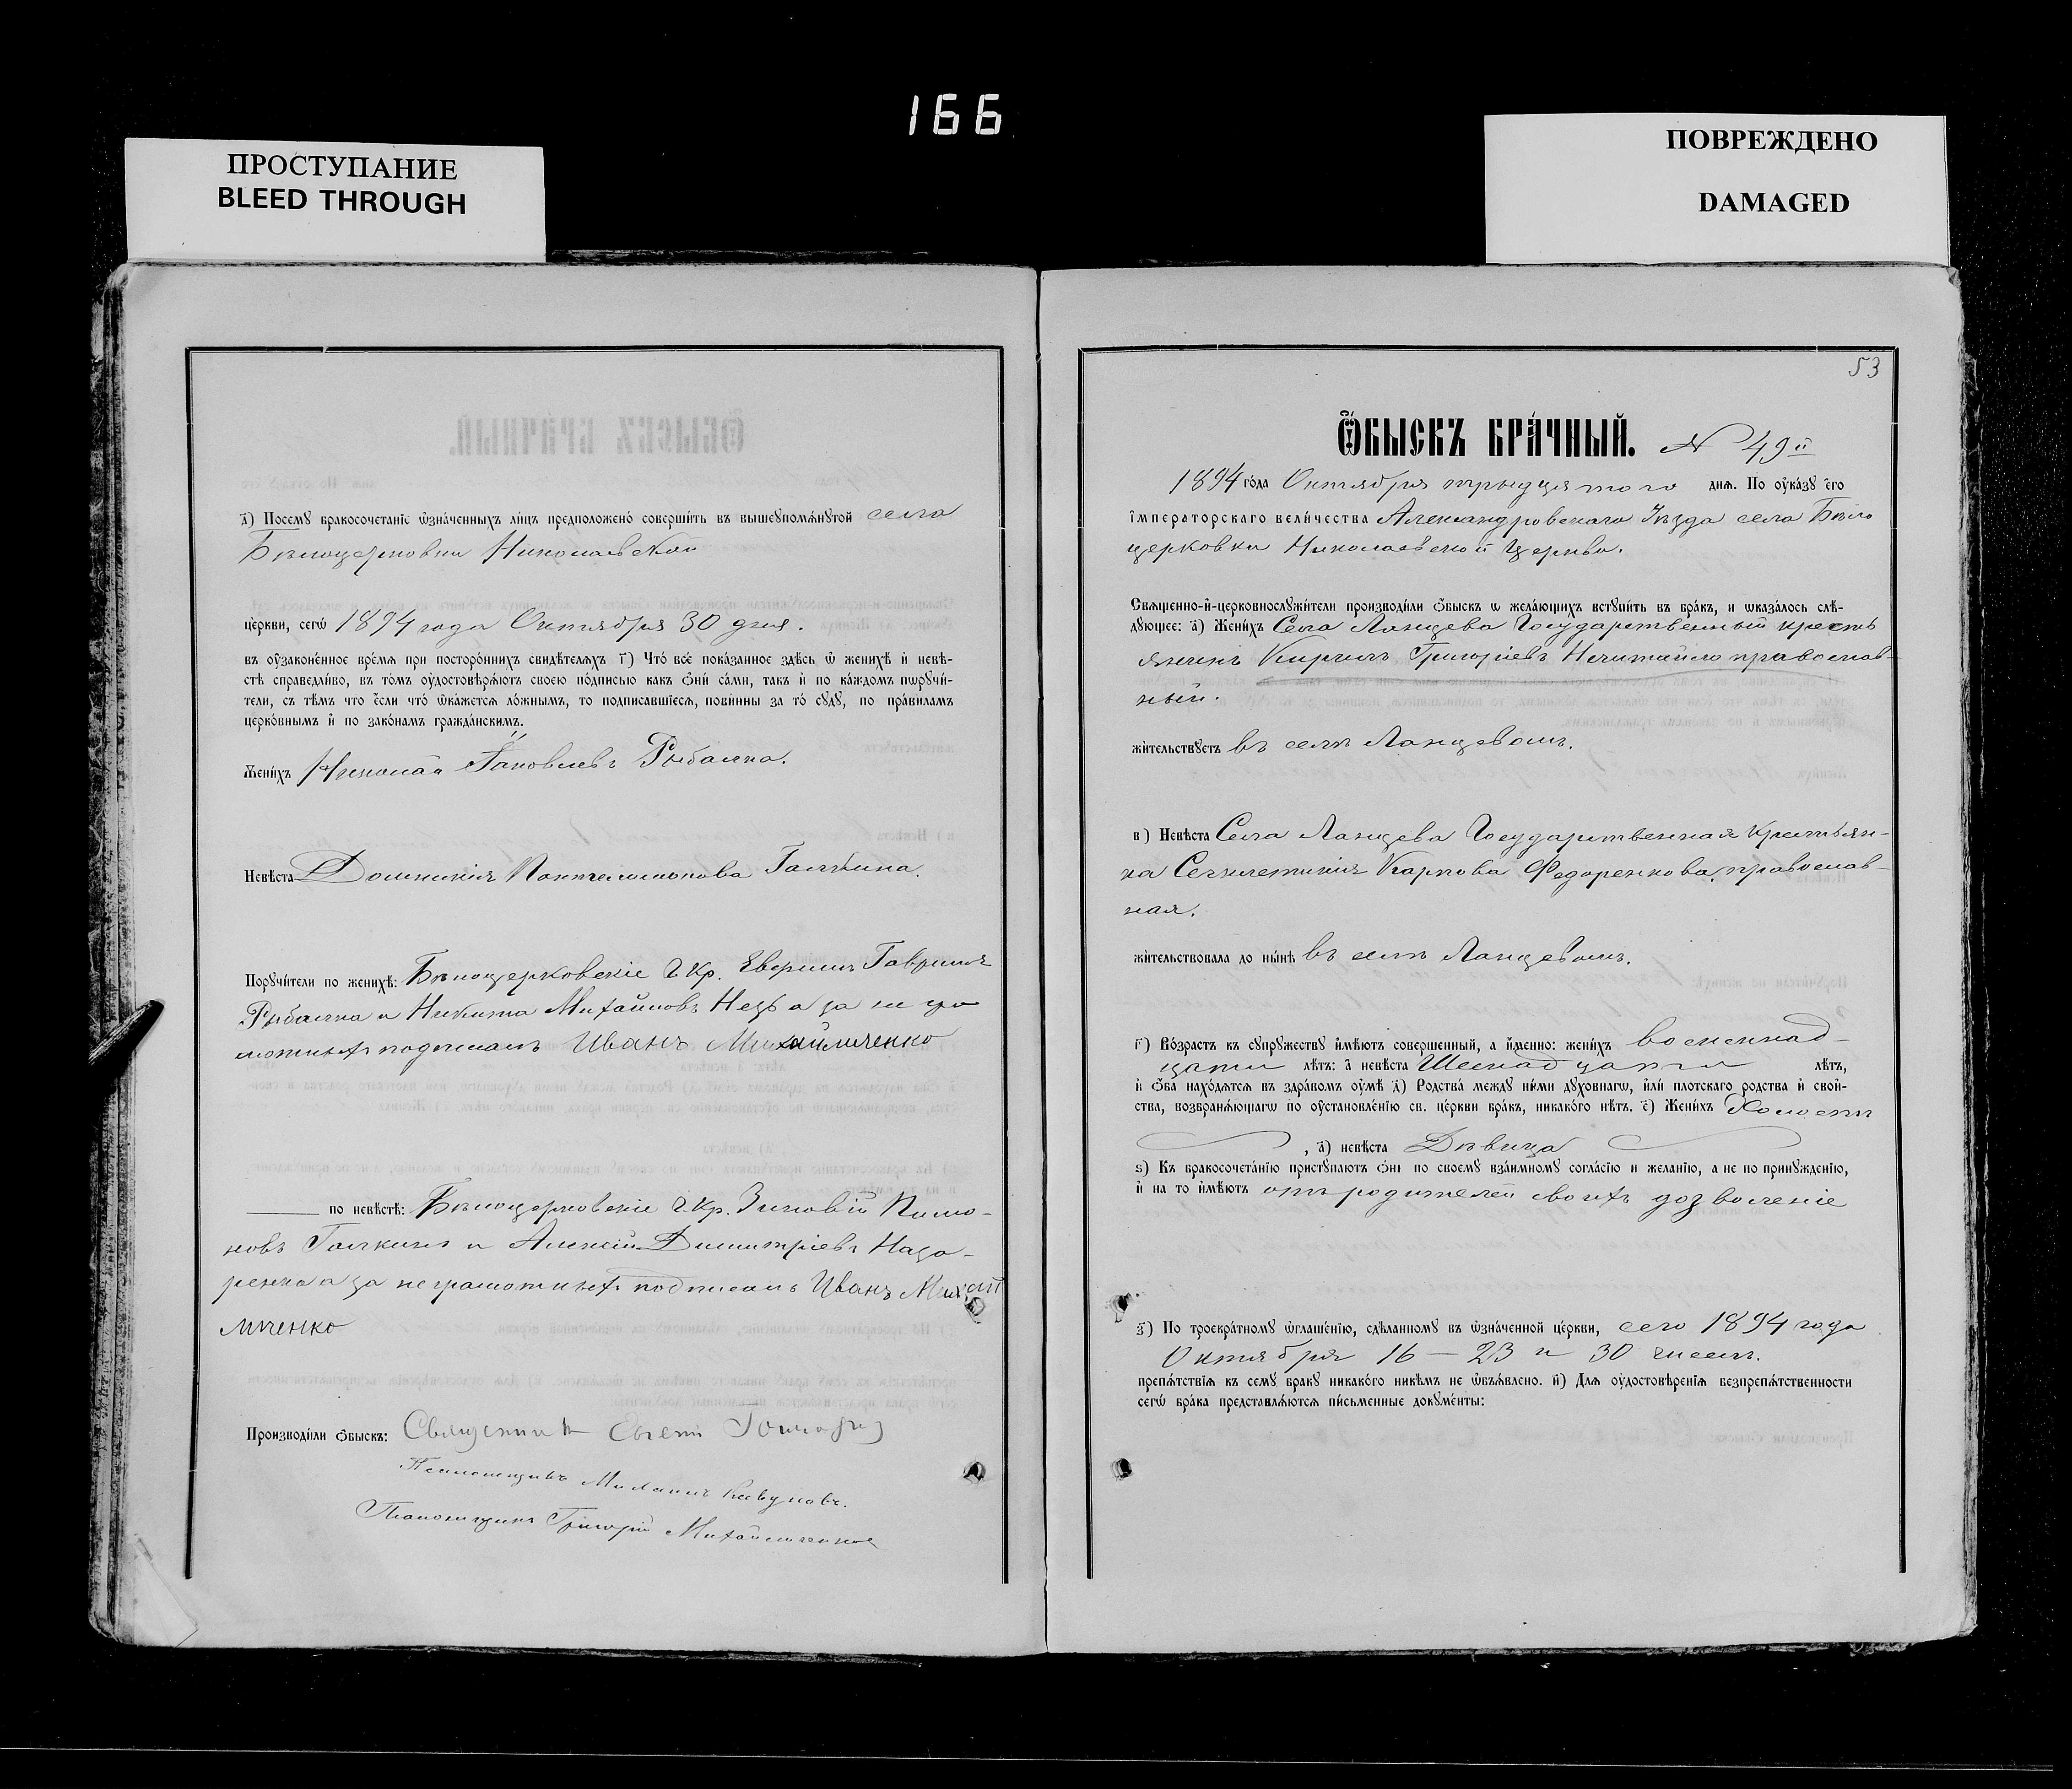 166
ПРОСТУПАНИЕ
BLEED THROUGH
ПОВРЕЖДЕНО
DAMAGED
д) Посему бракосочетаніе ѡзначенныхъ лицъ предположено совершить въ вышеупомянутой села
Бѣлоцерковки Николаевской
церкви, сегѡ 1894 года Октября 30 дня.
въ оузаконенное время при постороннихъ свидѣтеляхъ г) Что все показанное здѣсь ѡ женихѣ и невѣ-
стѣ справедливо, въ томъ оудостовѣряютъ своею подписью какъ ѻни сами, такъ и по каждомъ пѡручи-
тели, съ тѣмъ что если что ѡкажется ложнымъ, то подписавшіеся, повинны за то суду, по правиламъ
церковнымъ и по законамъ гражданскимъ.
Женихъ Николай Яковлевъ Рыбалка.
Невѣста Домникія Пантелимонова Галкина.
Поручители по женихѣ: Бѣлоцерковскіе Г Кр. Гаврилъ
Рыбалка и Никита Михайловъ а за не гра
мотныхъ подписалъ Иванъ Михайличенко
по невѣстѣ: Бѣлоцерковскіе Г Кр. Зиновій
новъ Галкинъ и Алексій Димитріевъ Наза-
ренко а за неграмотныхъ подписалъ Иванъ Михай
личенко
Производили ѻбыскъ: Священникъ Евгеній
Помощникъ
Помощникъ Григорій Михайличенко
53
Ѻбыскъ брачный. № 49й
1894 года Октября трыдцятого дня. По оуказу его
императорскаго величества Александровскаго Уѣзда села Бѣло
церковки Николаевской Церкви.
Священно-и-церковнослужители производили ѻбыскъ ѡ желающихъ вступить въ бракъ, и ѡказалось слѣ-
дующее: а) Женихъ Села Ланцева Государственный кресть
янинъ Кирилъ Григоріевъ Нечитайло православ-
ный.
жительствуетъ въ селѣ Ланцевомъ.
в) Невѣста Села Ланцева Государственная Крестьян-
ка Секлетикія Карпова Федоренкова, православ-
ная.
жительствовала до нынѣ въ селѣ Ланцевомъ.
г) Возрастъ къ супружеству имѣютъ совершенный, а именно: женихъ восемнад-
цати лѣтъ: а невѣста Шеснадцати лѣтъ,
и ѻба находятся въ здравомъ оумѣ д) Родства между ними духовнагѡ, или плотскаго родства и свой-
ства, возбраняющагѡ по оустановленію св. церкви бракъ, никакого нѣтъ. е) Женихъ Холостъ
, а) невѣста Дѣвица
ѕ) Къ бракосочетанію приступаютъ ѻни по своему взаимному согласію и желанію, а не по принужденію,
и на то имѣютъ отъ родителей своихъ дозволеніе
з) По троекратному ѡглашенію, сдѣланному въ ѡзначенной церкви, сего 1894 года
Октября 16 — 23 и 30 чиселъ.
препятствія къ сему браку никакого никѣмъ не ѡбъявлено. и) Для оудостовѣренія безпрепятственности
сегѡ брака представляются письменные документы: